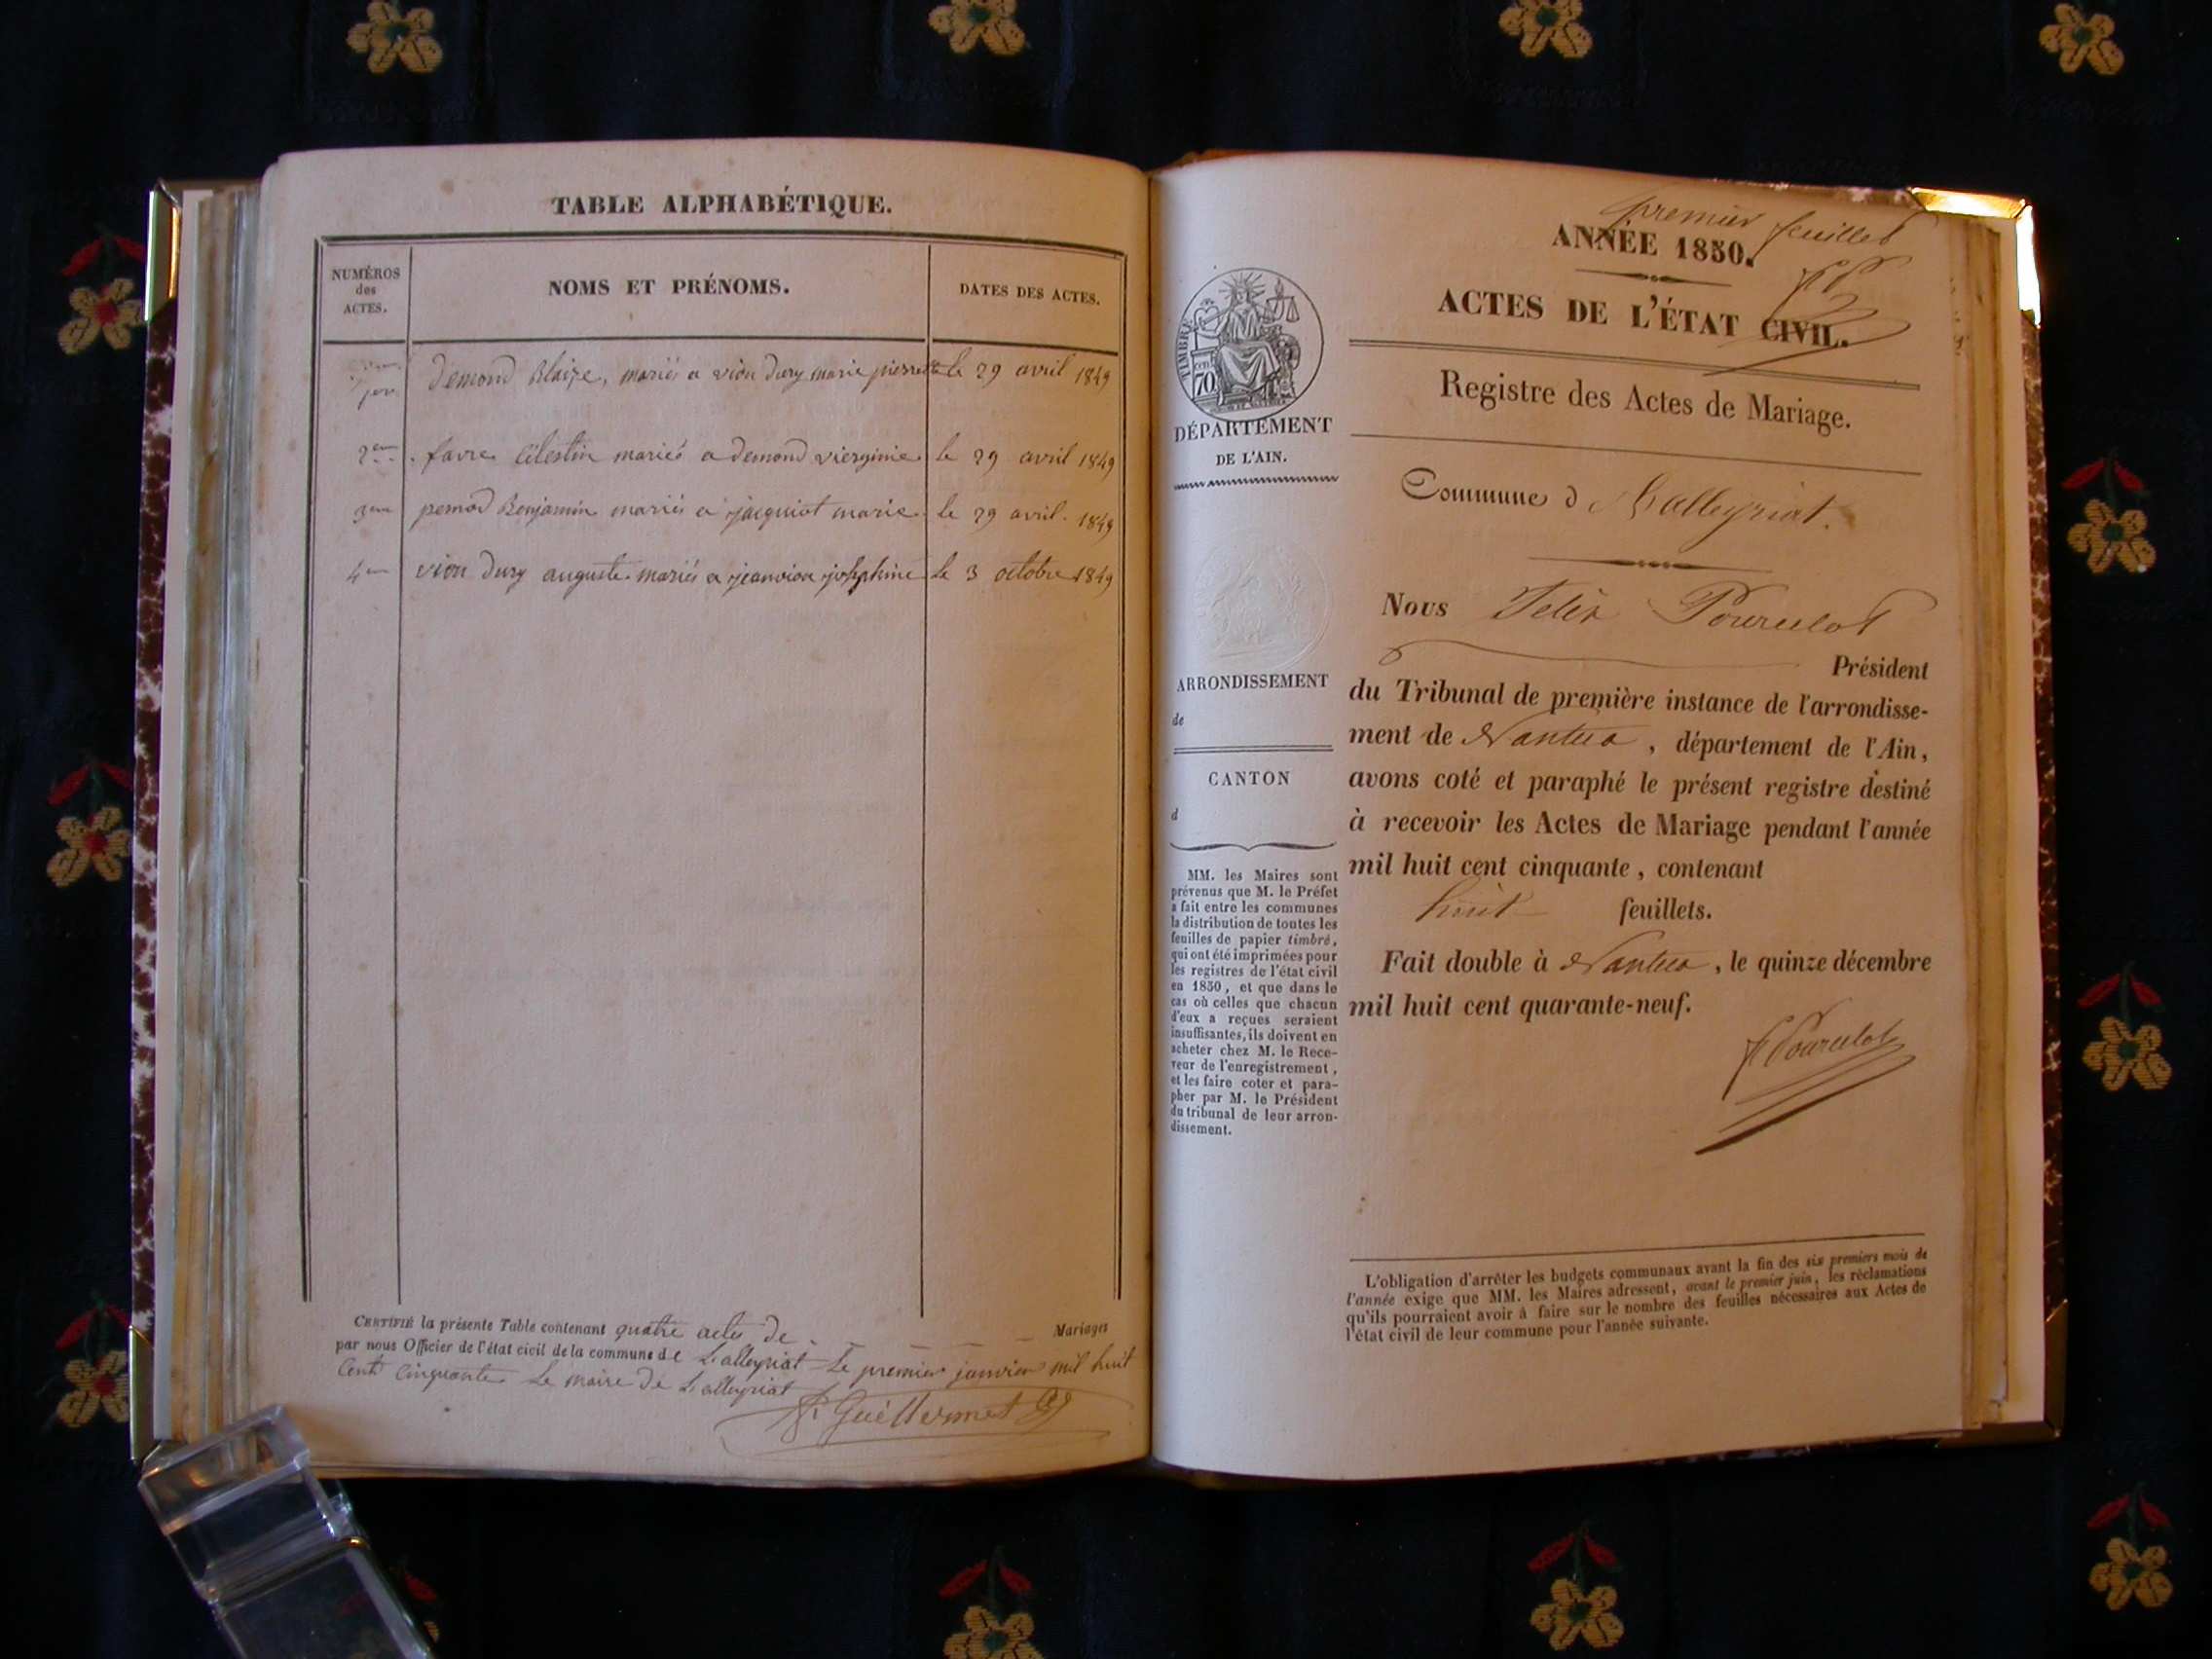 TABLE ALPHABÉTIQUE.
NUMÉROS
des
ACTES.
NOMS ET PRÉNOMS.
DATES DES ACTES.
demond Blaize, mariés a vion dury marie pierrette le 29 avril 1849
2eme favre Célestin mariés a demond vierginie le 29 avril 1849
3eme pernod Benjamin mariés a jacquiot marie le 29 avril. 1849
4eme vion dury auguste mariés a jeanvion josephine le 3 octobre 1849
CERTIFIÉ la présente Table contenant quatre actes de Mariages
par nous Officier de l'état civil de la commune de Lalleyriat Le premier janvier mil huit
Cent Cinquante Le maire de Lalleyriat
Guillermet
premier feuillet
ANNÉE 1850.
ACTES DE L'ÉTAT CIVIL.
Registre des Actes de Mariage.
Commune d Lalleyriat.
TIMBRE
70
DÉPARTEMENT
DE L'AIN.
ARRONDISSEMENT
de
CANTON
d
MM. les Maires sont
prévenus que M. le Préfet
a fait entre les communes
la distribution de toutes les
feuilles de papier timbré,
qui ont été imprimées pour
les registres de l'état civil
en 1850, et que dans le
cas où celles que chacun
d'eux a reçues seraient
insuffisantes, ils doivent en
acheter chez M. le Rece-
veur de l'enregistrement,
et les faire coter et para-
pher par M. le Président
du tribunal de leur arron-
dissement.
Nous Félix Pourcelot
Président
du Tribunal de première instance de l'arrondisse-
ment de Nantua, département de l'Ain,
avons coté et paraphé le présent registre destiné
à recevoir les Actes de Mariage pendant l'année
mil huit cent cinquante, contenant
huit feuillets.
Fait double à Nantua, le quinze décembre
mil huit cent quarante-neuf.
F Pourcelot
L'obligation d'arrêter les budgets communaux avant la fin des six premiers mois de
l'année exige que MM. les Maires adressent, avant le premier juin, les réclamations
qu'ils pourraient avoir à faire sur le nombre des feuilles nécessaires aux Actes de
l'état civil de leur commune pour l'année suivante.